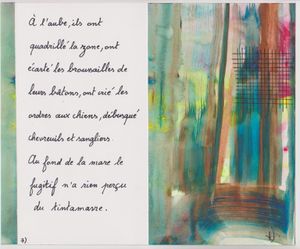 À l'aube, ils ont
quadrillé la zone, ont
écarté les broussailles de
leurs bâtons, ont crié les
ordres aux chiens, débusqué
chevreuils et sangliers.
Au fond de la mare le
fugitif n'a rien perçu
du tintamarre.